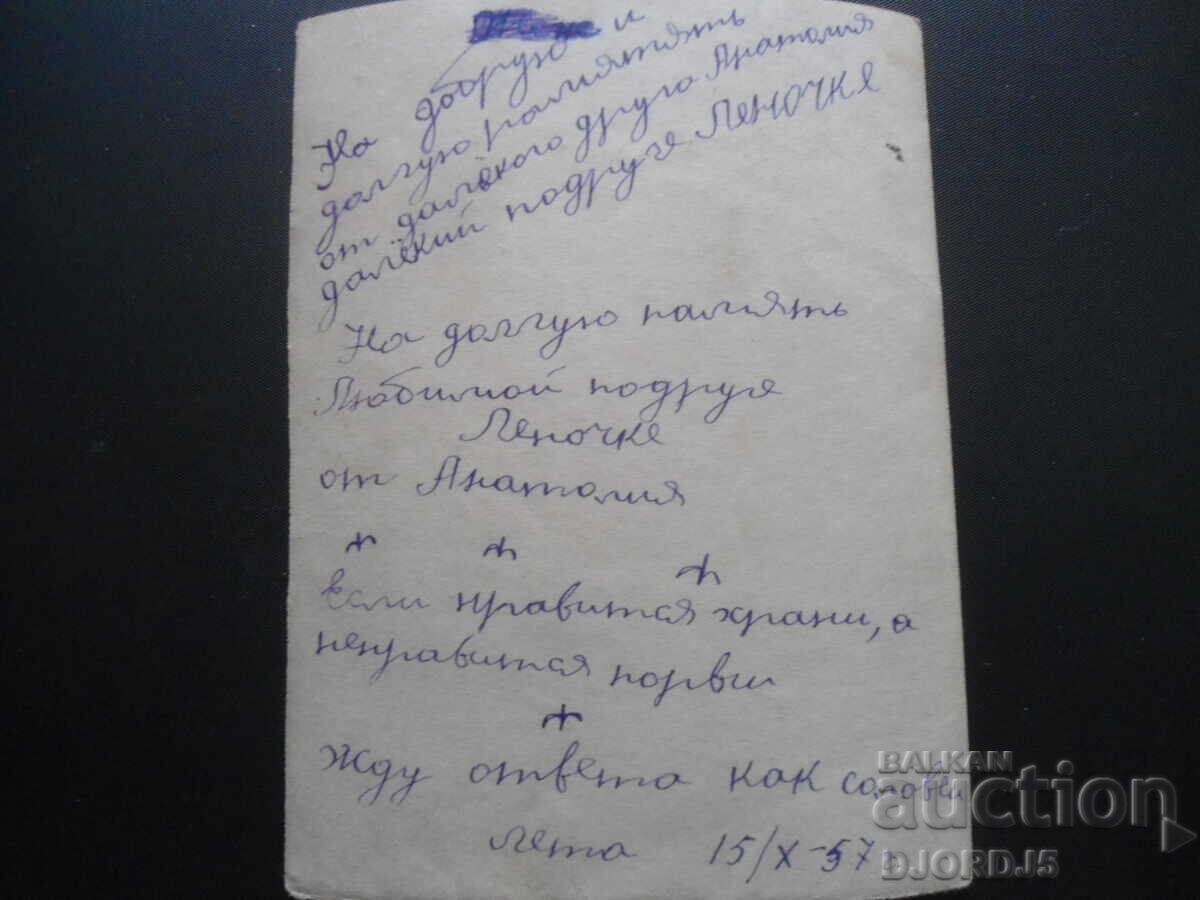 На добрую и
долгую памятять
от далёкого друга Анатолия
далёкий подруге Леночке
На долгую память
Любимой подруге
Леночке
от Анатолия
Если нравится храни, а
ненравится порви
Жду ответа как соловей
лета 15/X-57г.
BALKAN
auction
DJORDJ5